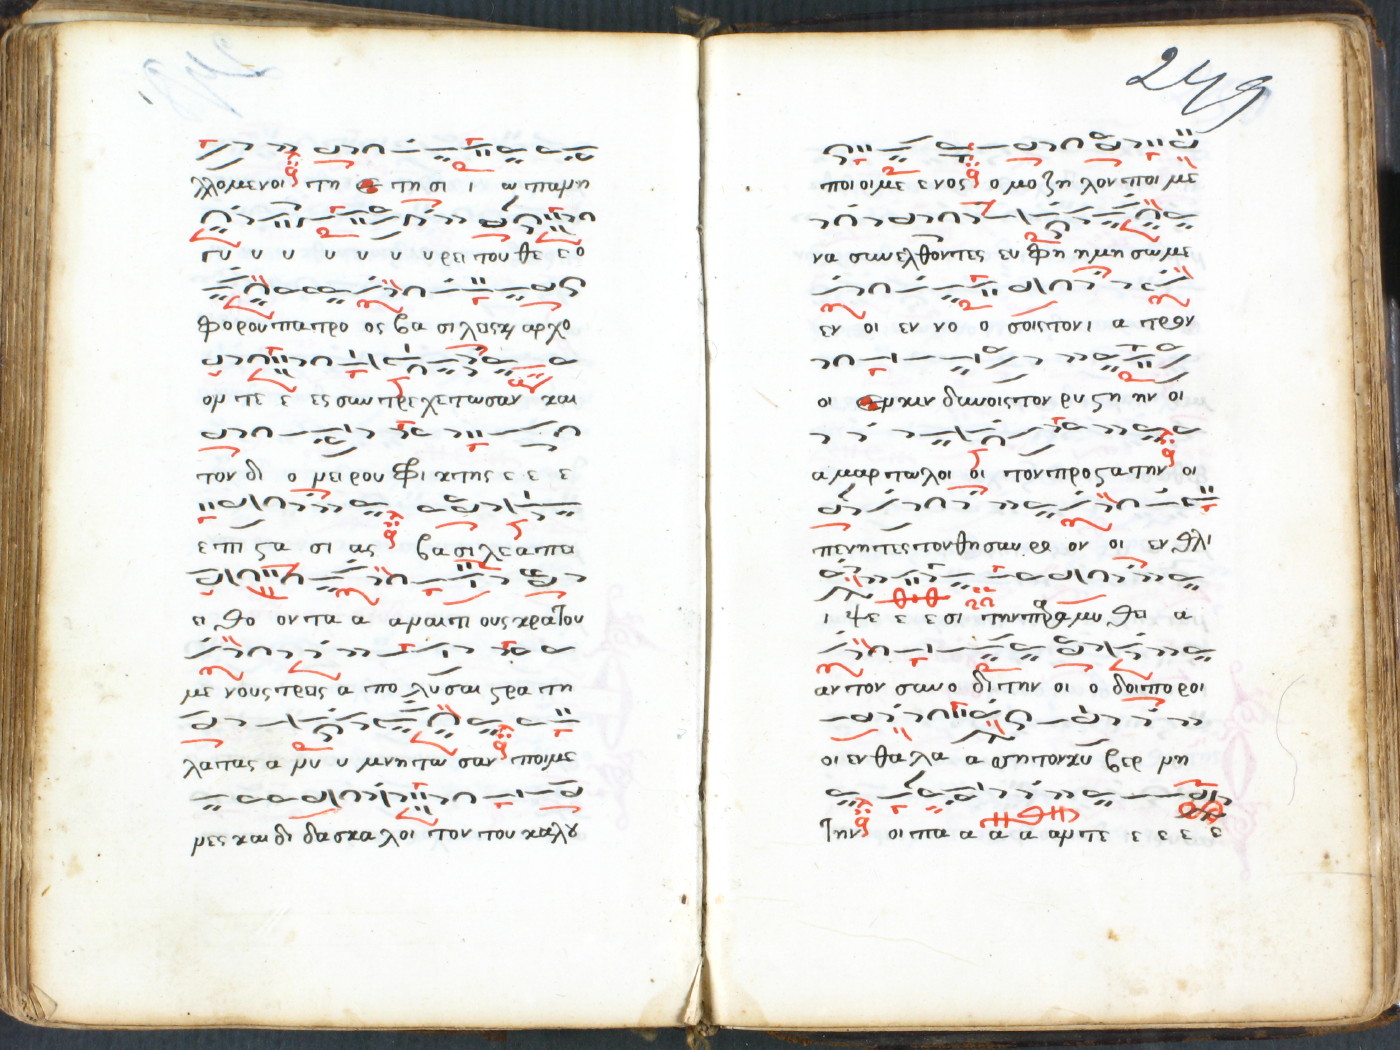 λλομενοι τη ε τη σι ι ω παμη
γυ υ υ υ υ υ υ υρει του θε ε ο
φορου πατρο ος βα σι λεις κ αρχο
ον τε ε ες συν τρε χε τω σαν και
τον δι ο μει ρου φρι κτης ε ε ε
ε πι στα σι ας βα σι λε α πει
ει θο ον τα α α μαι τι ους κρατου
με νους τρεις α πο λυ σαι στρα τη
λα τας α μυ υ μνη τω σαν ποιμε
μες και δι δα σκα λοι τον του καλου
249
ποι οι με ε νος ο μο ζη λον ποι με
να συν ελθοντες ευ φη η μη σω με
εν οι εν νο ο σοις τον ι α τρον
οι εν κιν δυνοις τον ρυ στη ην οι
α μαρ τω λοι οι τον προ στα την οι
πενητες τον θησαυ ρο ον οι εν θλι
ι ψε ε ε σι την παρα μυ θι α
αν τον συν ο δι την οι ο δοιποροι
οι εν θαλα α ση τον κυ βερ νη
την οι πα α α α αν τε ε ε ε ε